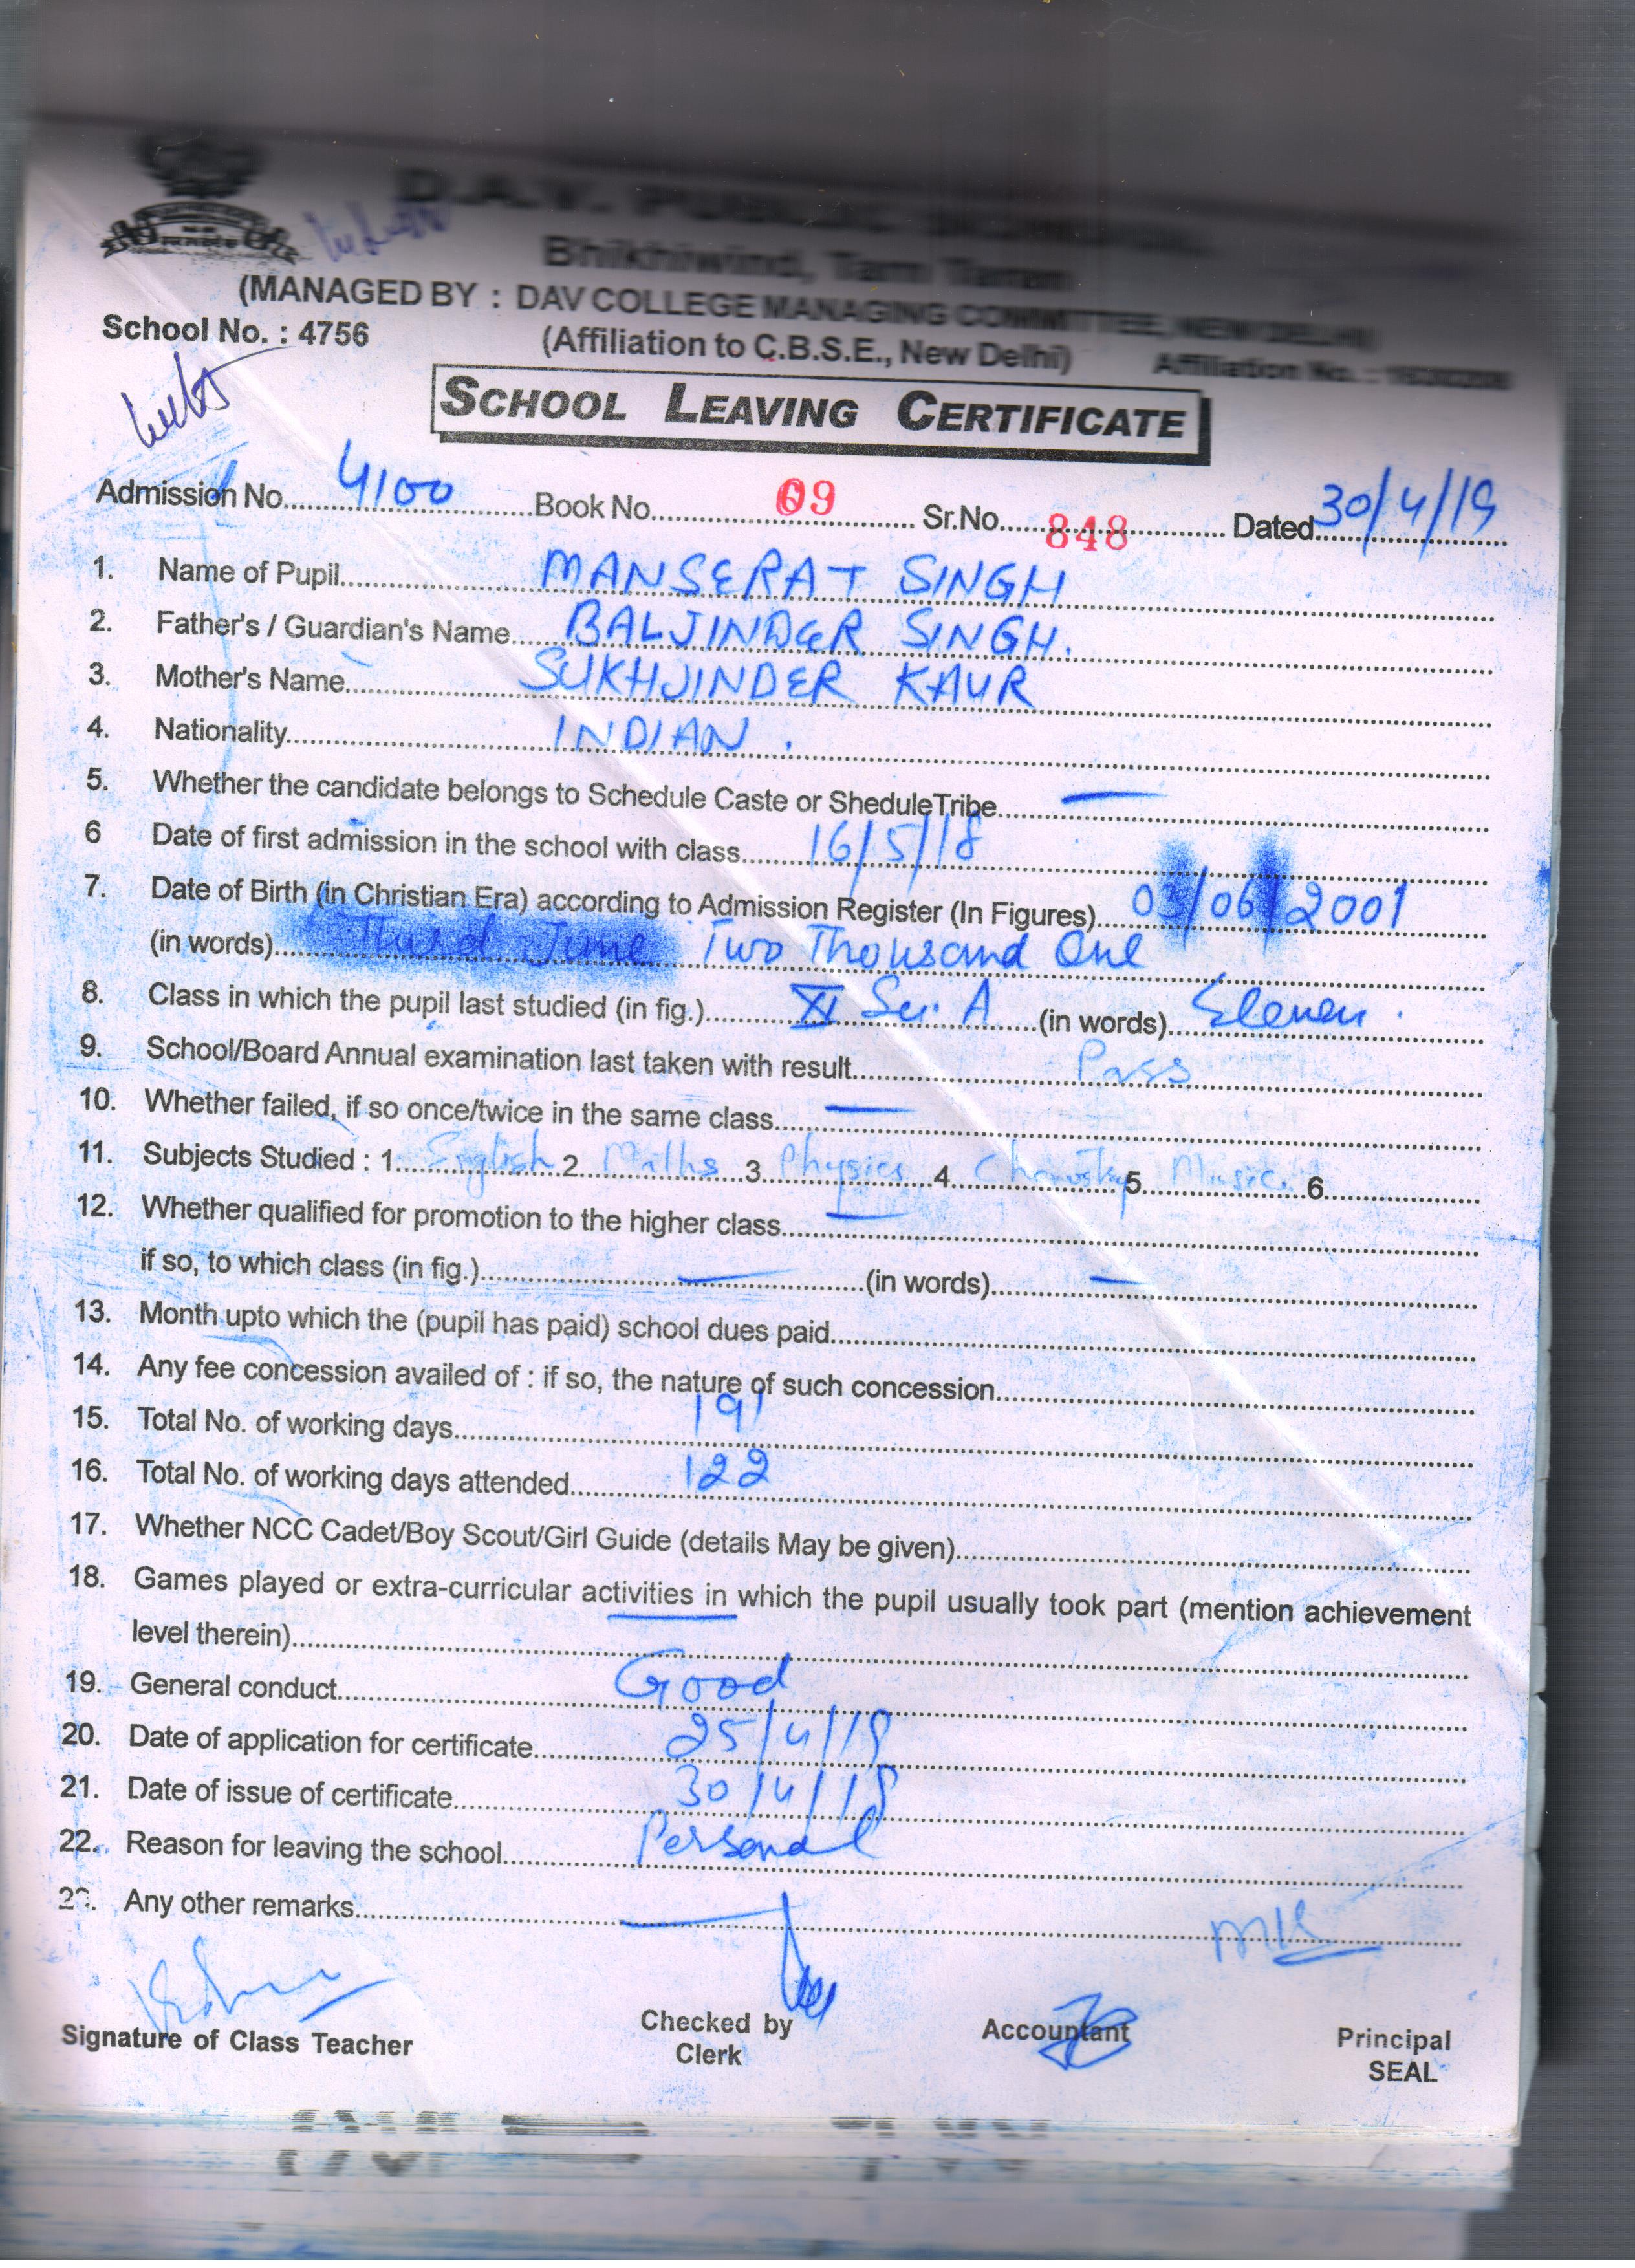 D.A.V. PUBLIC SCHOOL
Bhikhiwind, Tarn Taran
(MANAGED BY : DAV COLLEGE MANAGING COMMITTEE, NEW DELHI)
School No. : 4756 (Affiliation to C.B.S.E., New Delhi) Affiliation No. :
SCHOOL LEAVING CERTIFICATE
Admission No. 4100 Book No. 09 Sr.No. 848 Dated 30/4/19
1. Name of Pupil MANSERAT SINGH
2. Father's / Guardian's Name BALJINDER SINGH.
3. Mother's Name SUKHJINDER KAUR
4. Nationality INDIAN.
5. Whether the candidate belongs to Schedule Caste or SheduleTribe —
6 Date of first admission in the school with class 16/5/18
7. Date of Birth (in Christian Era) according to Admission Register (In Figures) 03/06/2001
(in words) Third June Two Thousand One
8. Class in which the pupil last studied (in fig.) XI Sci. A (in words) Eleven.
9. School/Board Annual examination last taken with result Pass
10. Whether failed, if so once/twice in the same class —
11. Subjects Studied : 1 English 2 Maths 3 Physics 4 Chemistry 5 Music 6
12. Whether qualified for promotion to the higher class —
if so, to which class (in fig.) — (in words) —
13. Month upto which the (pupil has paid) school dues paid
14. Any fee concession availed of : if so, the nature of such concession
15. Total No. of working days 191
16. Total No. of working days attended 122
17. Whether NCC Cadet/Boy Scout/Girl Guide (details May be given)
18. Games played or extra-curricular activities in which the pupil usually took part (mention achievement
level therein) —
19. General conduct Good
20. Date of application for certificate 25/4/19
21. Date of issue of certificate 30/4/19
22. Reason for leaving the school Personal
23. Any other remarks —
Signature of Class Teacher Checked by Accountant Principal
Clerk SEAL